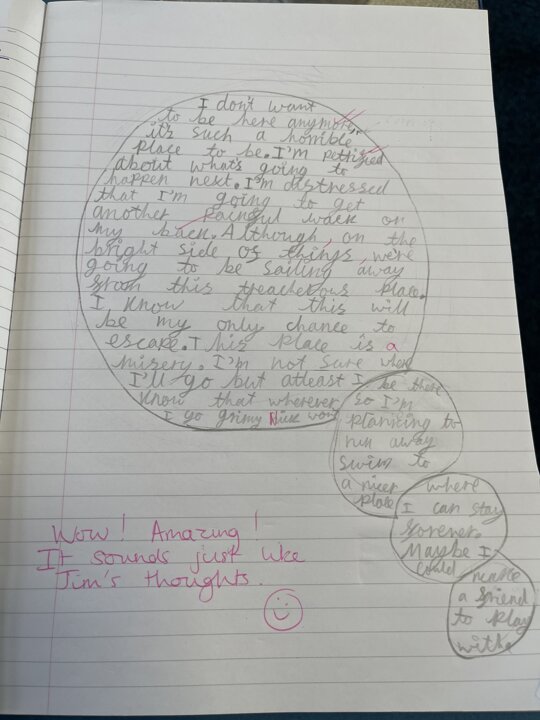 I don't want
to be here anymore,
it's such a horrible
place to be. I'm pettified
about what's going to
happen next. I'm distressed
that I'm going to get
another painful wack on
my back. Although, on the
bright side of things, we're
going to be sailing away
from this treacherous place.
I know that this will
be my only chance to
escape. This place is a
misery. I'm not sure where
I'll go but atleast I
know that wherever
I go grimy Nick won't
be there
so I'm
planning to
run away
swim to
a nicer
place
where
I can stay
forever.
Maybe I
could
make
a friend
to play
with.
Wow! Amazing!
It sounds just like
Jim's thoughts.